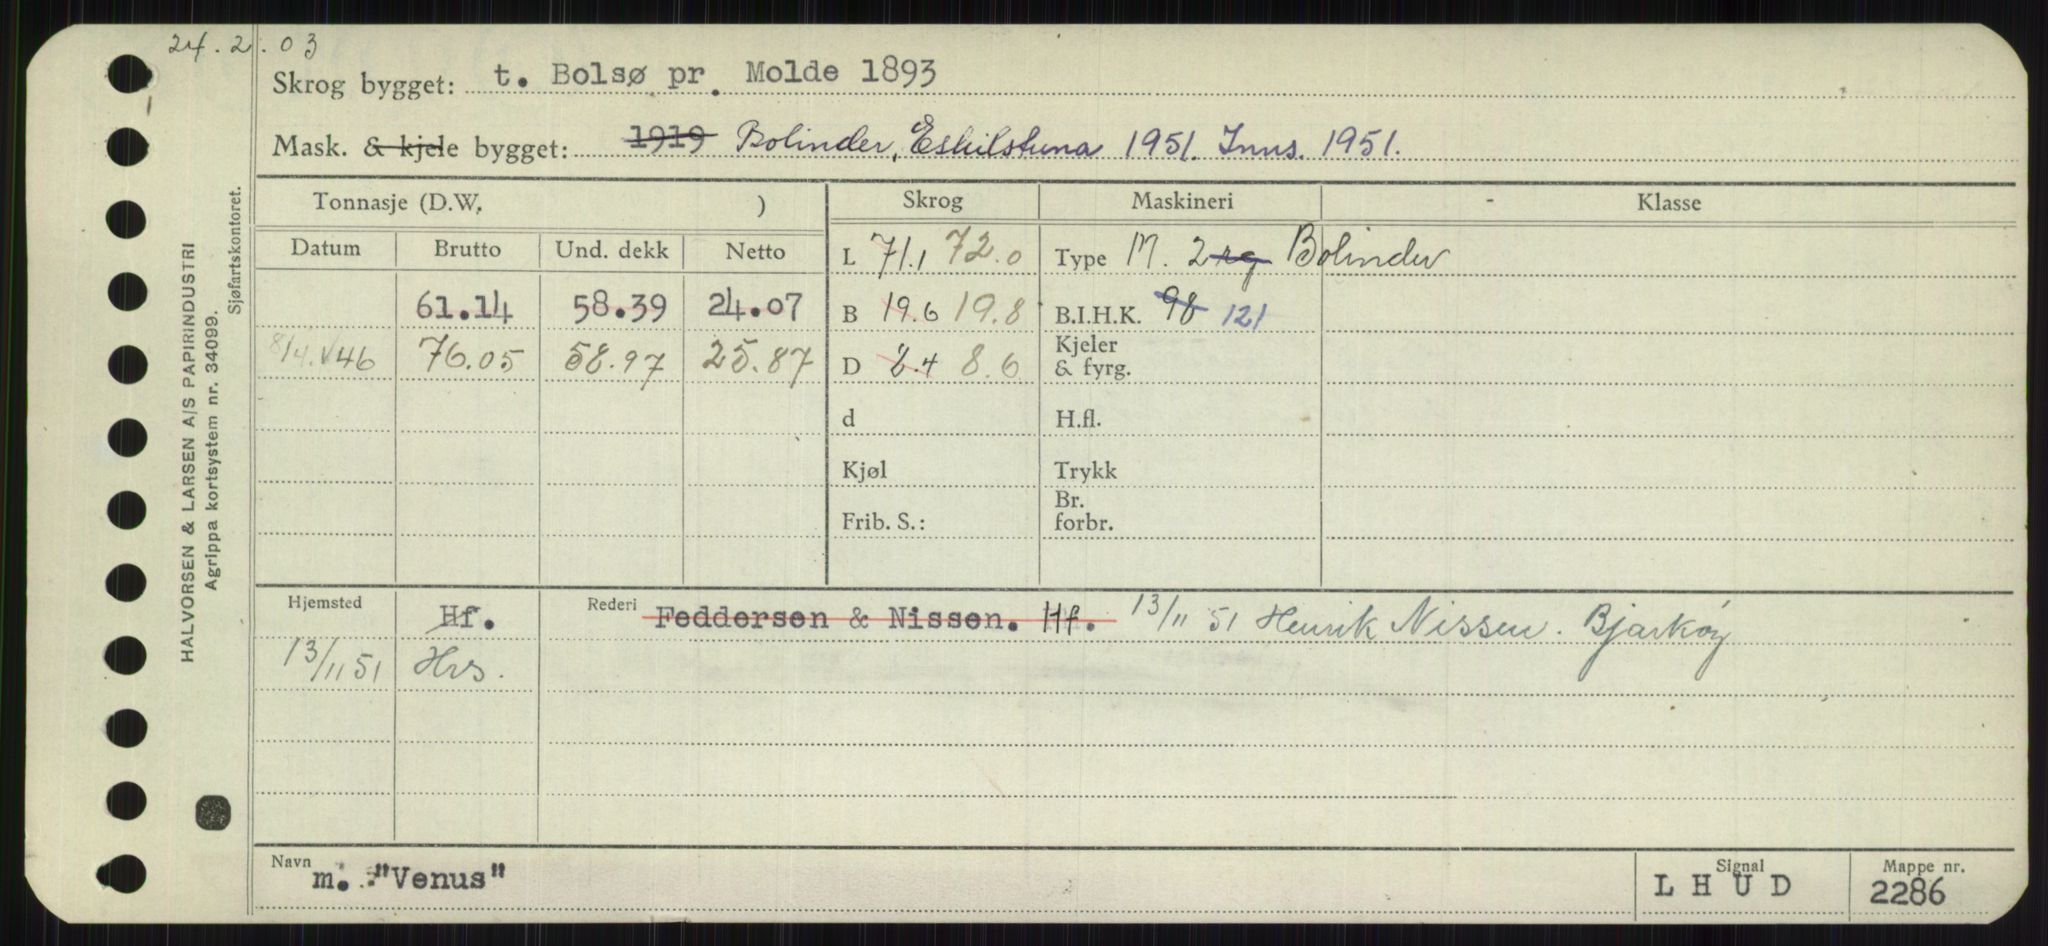 24.2.03
Skrog bygget: t. Bolsø pr. Molde 1893
Mask. & kjele bygget: 1919 Bolinder, Eskilstuna 1951. Inns. 1951.
Tonnasje (D.W. ) Skrog Maskineri - Klasse
Datum Brutto Und. dekk Netto L 71.1 72.0 Type M. 2 rg Bolinder
61.14 58.39 24.07 B 19.6 19.8 B.I.H.K. 98 121
8/4.46 76.05 58.97 25.87 D 8.4 8.6 Kjeler & fyrg.
d H.fl.
Kjøl Trykk
Frib. S.: Br. forbr.
Hjemsted Hf. Rederi Feddersen & Nissen. Hf. 13/11 51 Henrik Nissen. Bjarkøy
13/11 51 Hrs.
Navn m. "Venus" Signal LHUD Mappe nr. 2286
HALVORSEN & LARSEN A/S PAPIRINDUSTRI
Agrippa kortsystem nr. 34099.
Sjøfartskontoret.